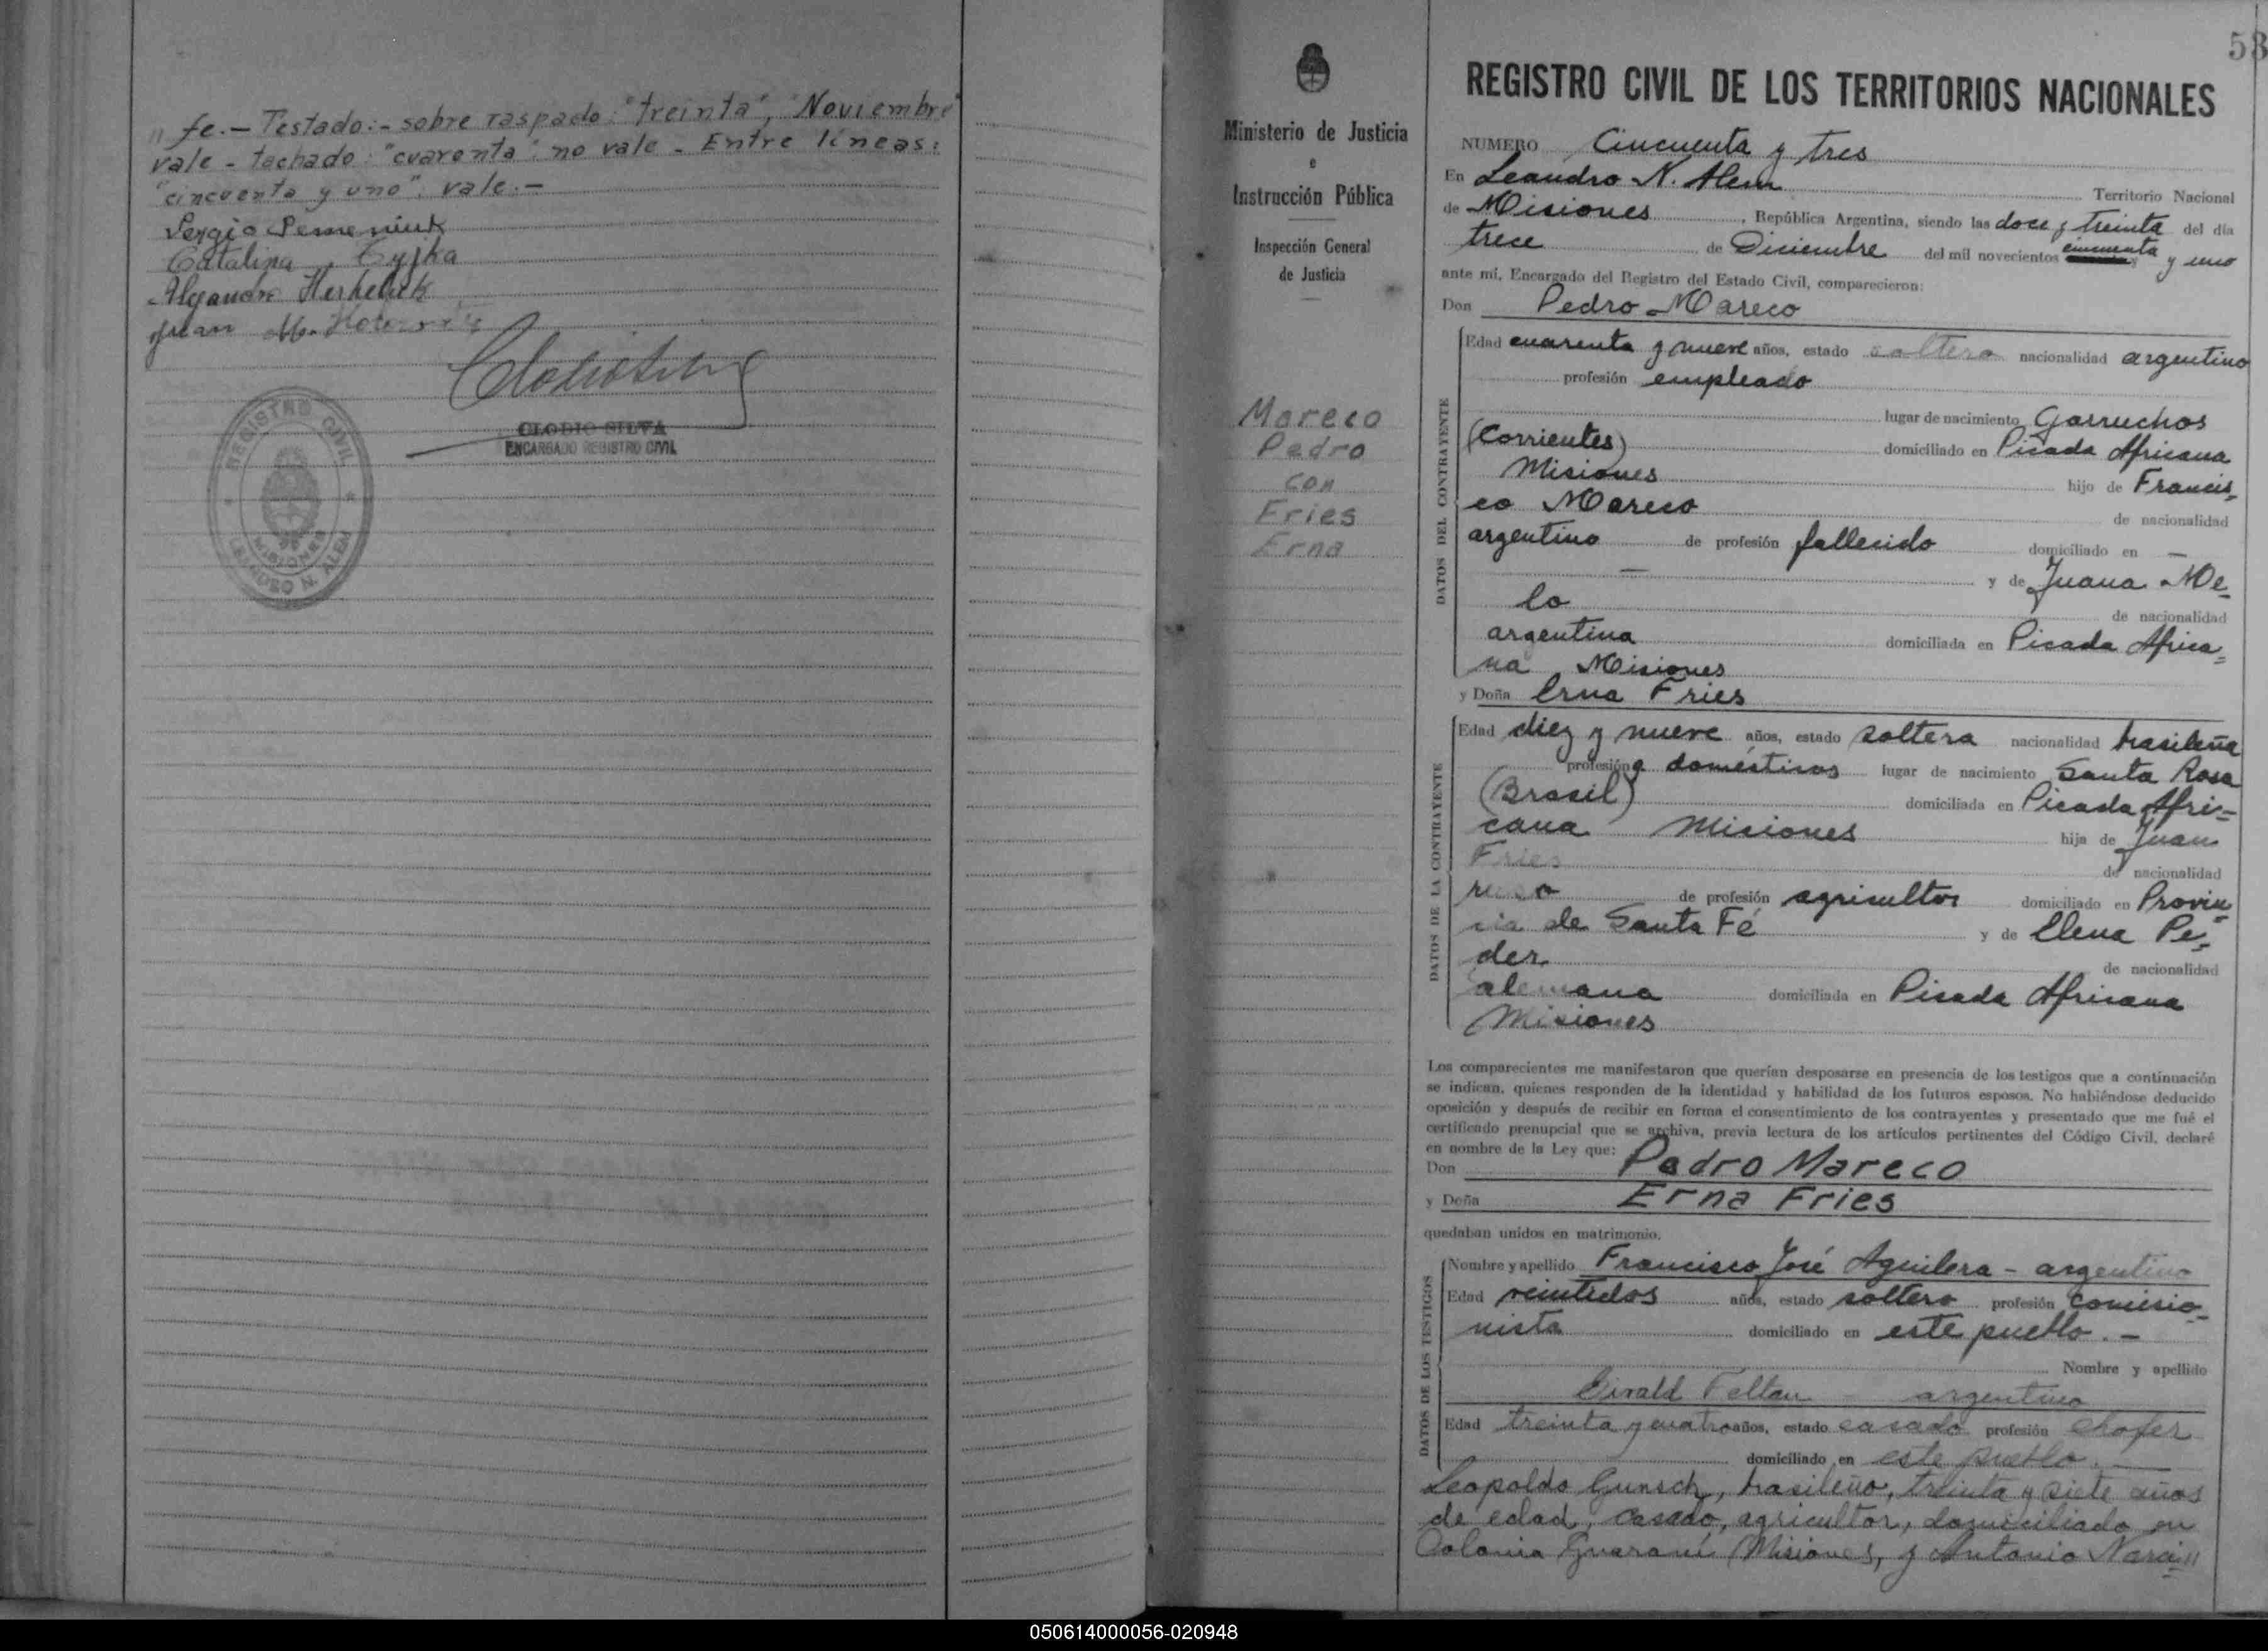 " fe.- Testado:- sobre raspado: "treinta", "Noviembre"
vale - tachado: "cuarenta": no vale - Entre líneas:
"cincuenta y uno": vale.-
Sergio Semeniuk
Catalina
Alejandro
Juan M.
CLODIO SILVA
ENCARGADO REGISTRO CIVIL
REGISTRO CIVIL
MISIONES
LEANDRO N. ALEM
58
Ministerio de Justicia
e
Instrucción Pública
Inspección General
de Justicia
Mareco
Pedro
con
Fries
Erna
REGISTRO CIVIL DE LOS TERRITORIOS NACIONALES
NUMERO Cincuenta y tres
En Leandro N. Alem Territorio Nacional
de Misiones, República Argentina, siendo las doce y treinta del día
trece de Diciembre del mil novecientos cincuenta y uno
ante mí, Encargado del Registro del Estado Civil, comparecieron:
Don Pedro Mareco
DATOS DEL CONTRAYENTE
Edad cuarenta y nueve años, estado soltero nacionalidad argentino
profesión empleado
lugar de nacimiento Garruchos
(Corrientes) domiciliado en Picada Africana
Misiones hijo de Francis=
co Mareco de nacionalidad
argentino de profesión fallecido domiciliado en —
— y de Juana Me=
lo de nacionalidad
argentina domiciliada en Picada Africa=
na Misiones
y Doña Erna Fries
DATOS DE LA CONTRAYENTE
Edad diez y nueve años, estado soltera nacionalidad brasileña
profesión q. domésticos lugar de nacimiento Santa Rosa
(Brasil) domiciliada en Picada Afri=
cana Misiones hija de Juan
Fries de nacionalidad
ruso de profesión agricultor domiciliado en Provin=
cia de Santa Fé y de Elena Pe=
der de nacionalidad
alemana domiciliada en Picada Africana
Misiones
Los comparecientes me manifestaron que querían desposarse en presencia de los testigos que a continuación
se indican, quienes responden de la identidad y habilidad de los futuros esposos. No habiéndose deducido
oposición y después de recibir en forma el consentimiento de los contrayentes y presentado que me fué el
certificado prenupcial que se archiva, previa lectura de los artículos pertinentes del Código Civil, declaré
en nombre de la Ley que:
Don Pedro Mareco
y Doña Erna Fries
quedaban unidos en matrimonio.
DATOS DE LOS TESTIGOS
Nombre y apellido Francisco José Aguilera - argentino
Edad veintidos años, estado soltero profesión comisio=
nista domiciliado en este pueblo.-
Nombre y apellido
argentino
Edad treinta y cuatro años, estado casado profesión chofer
domiciliado en este pueblo.—
Leopoldo Gunsch, brasileño, treinta y siete años
de edad, casado, agricultor, domiciliado en
Colonia Guaraní (Misiones, y Antonio Narcis=
050614000056-020948